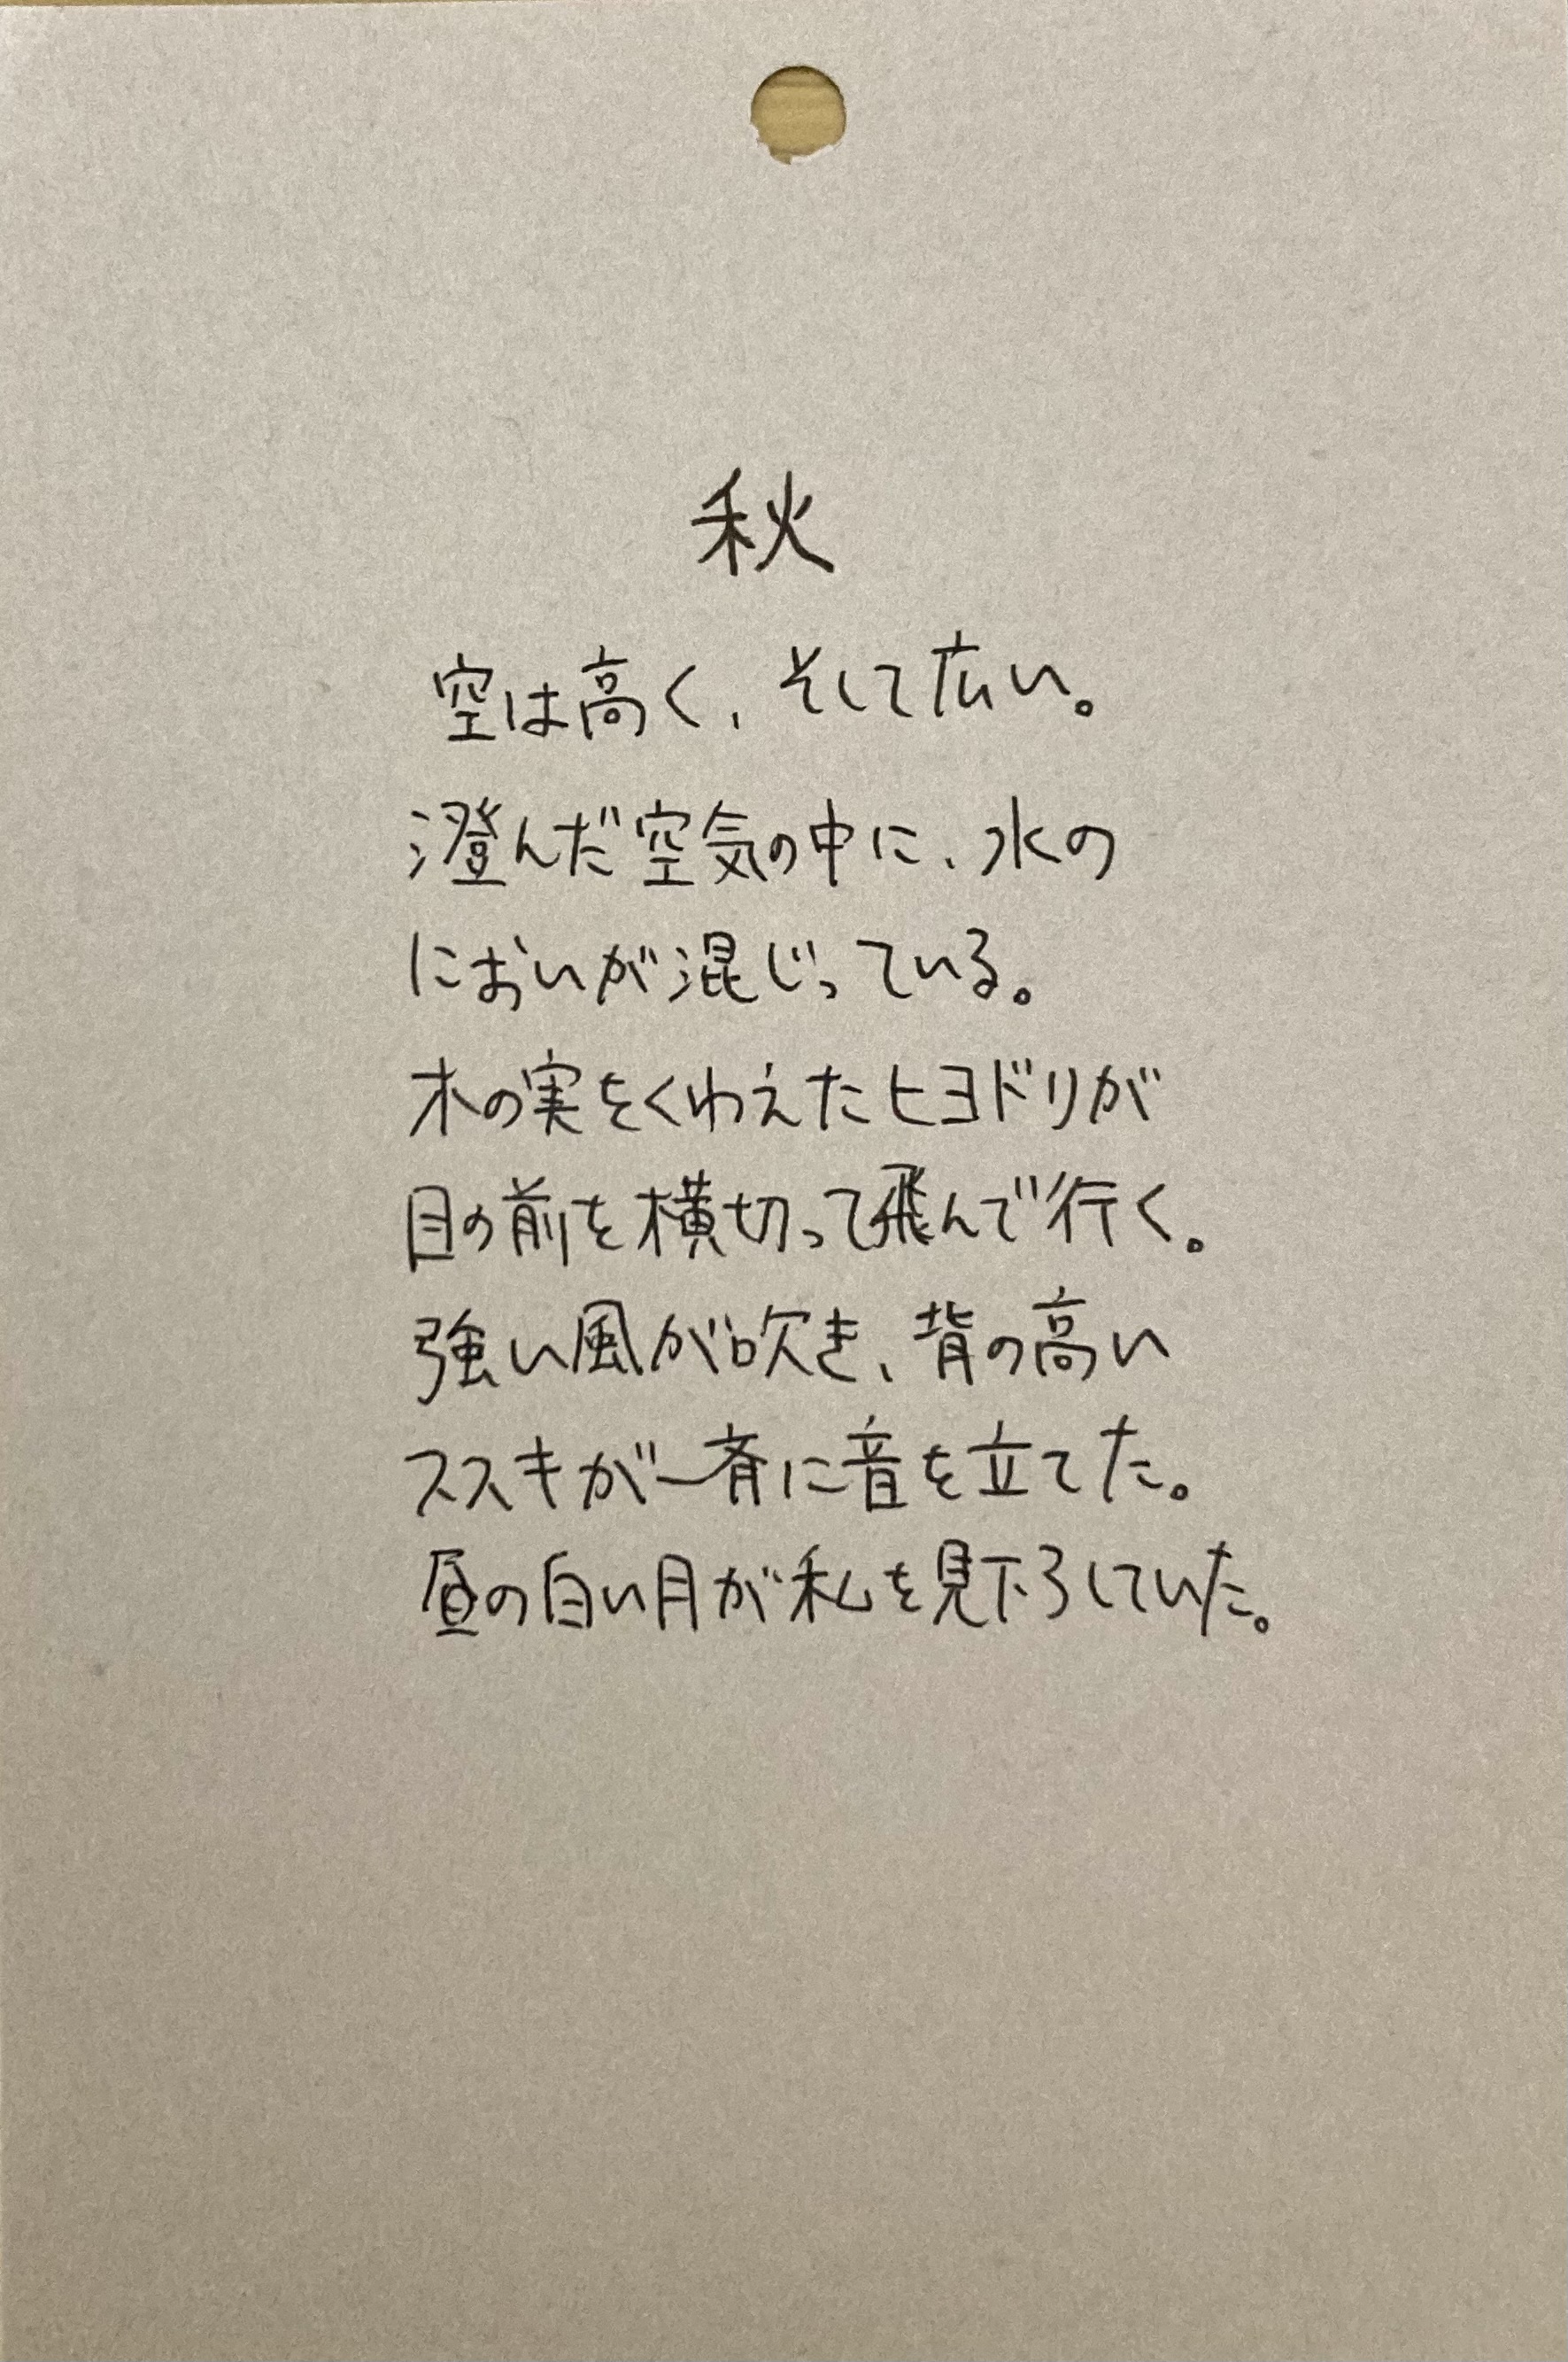 秋
空は高く、そして広い。
澄んだ空気の中に、水の
においが混じっている。
木の実をくわえたヒヨドリが
目の前を横切って飛んで行く。
強い風が吹き、背の高い
ススキが一斉に音を立てた。
昼の白い月が私を見下ろしていた。